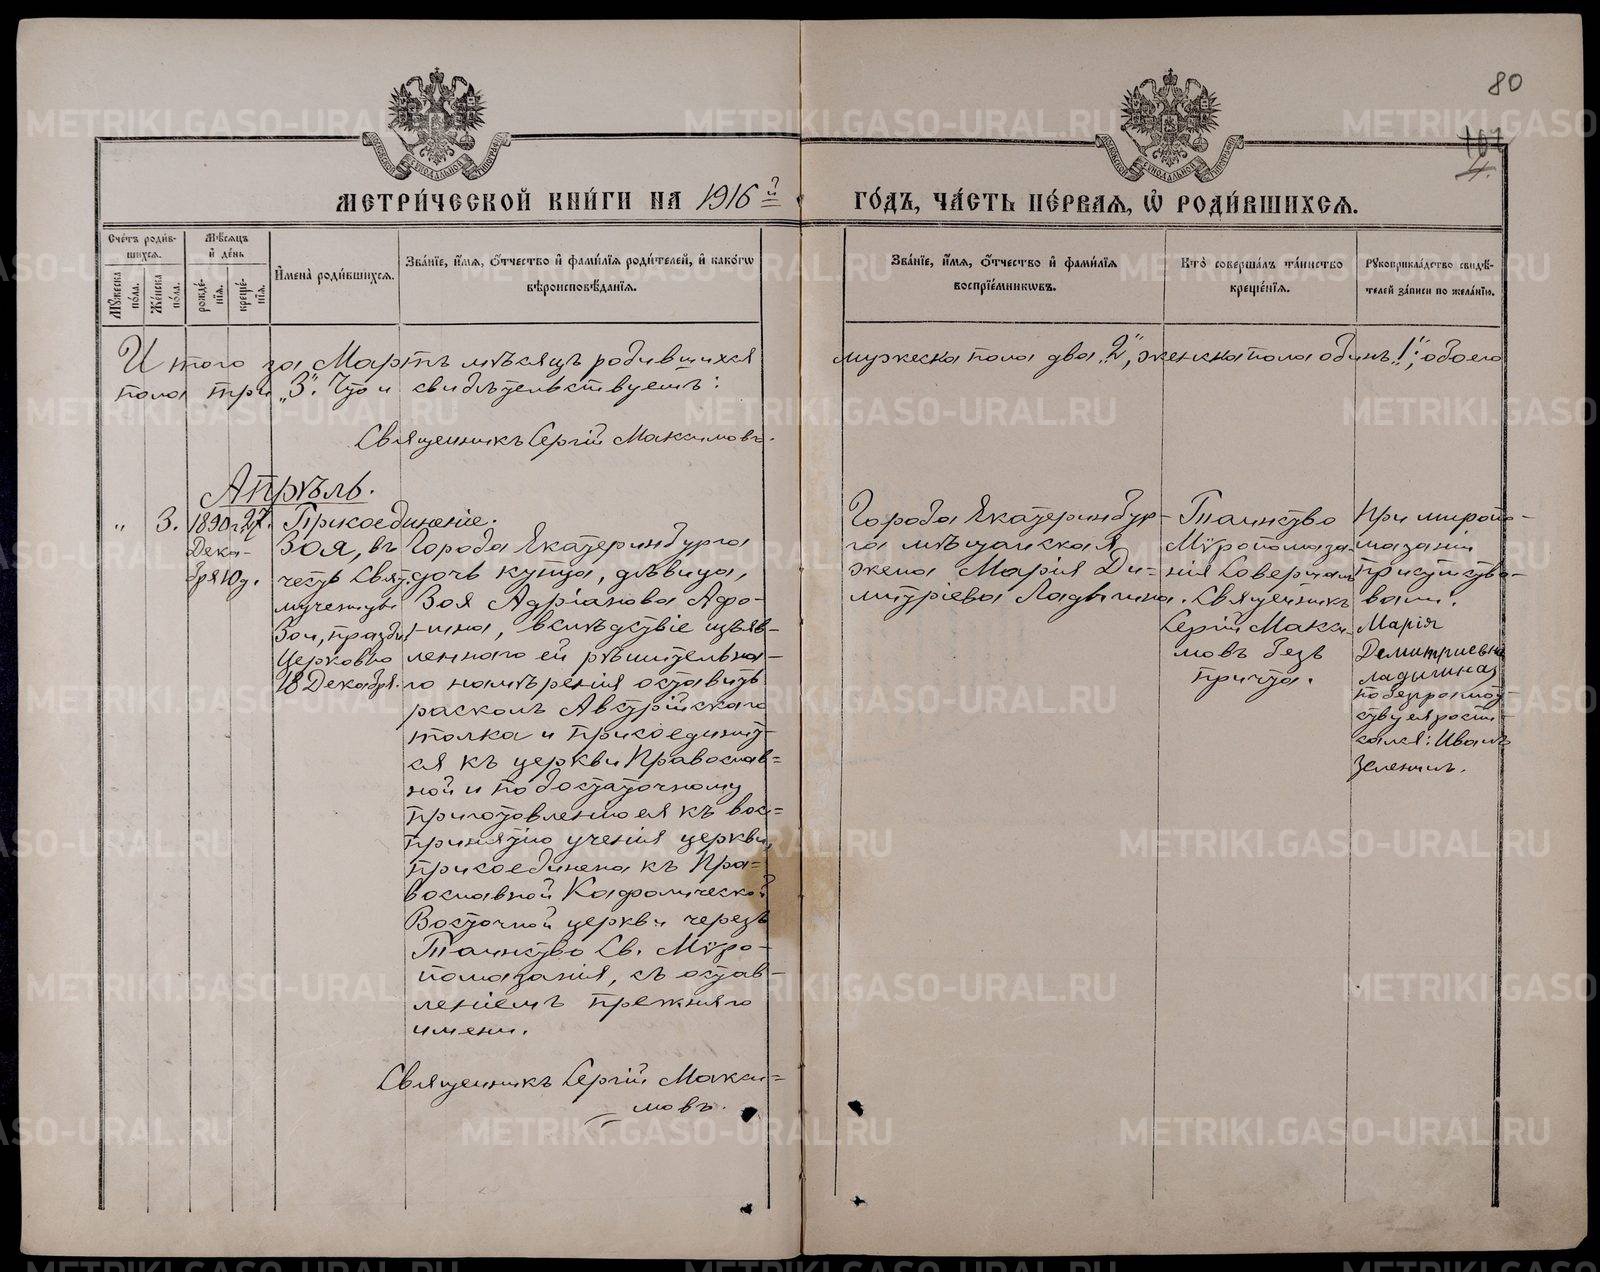 80
107
4.
МЕТРИ́ЧЕСКОЙ КНИ́ГИ НА 1916й ГО́ДЪ, ЧА́СТЬ ПЕ́РВАѦ, Ѡ҆ РОДИ́ВШИХСѦ.
Сче́тъ роди́вшихсѧ.
Мꙋ́жеска по́ла.
Же́нска по́ла.
Мѣ́сѧцъ и҆ де́нь
рожде́нїѧ.
креще́нїѧ.
И҆мена̀ роди́вшихсѧ.
Зва́нїе, и҆́мѧ, ѻ҆́тчество и҆ фами́лїѧ роди́телей, и҆ како́гѡ
вѣроисповѣ́данїѧ.
Зва́нїе, и҆́мѧ, ѻ҆́тчество и҆ фами́лїѧ
воспрїе́мникѡвъ.
Кто̀ соверша́лъ та́инство
креще́нїѧ.
Рꙋкоприкла́дство свидѣ́-
телей за́писи по жела́нїю.
Итого за Мартъ мѣсяцъ родившихся мужеска пола два „2“, женска пола одинъ „1“; обоего
пола три „3“. Что и свидѣтельствуетъ:
Священникъ Сергій Максимовъ.
Апрѣль.
„ 3. 1890 г. 27.
Дека-
бря 10 д.
Присоединеніе.
Зоя, въ
честь Свят.
мученицы
Зои, праздн.
Церковію
18 Декабря.
Города Екатеринбурга
дочь купца, дѣвица,
Зоя Адріанова Афо-
нина, вслѣдствіе изъяв-
леннаго ей рѣшительна-
го намѣренія оставить
расколъ Австрійскаго
толка и присоединит-
ся къ церкви Православ-
ной и по достаточному
приготовленію ея къ вос-
принятію ученія церкви,
присоединена къ Пра-
вославной Каѳолической
Восточной церкви черезъ
Таинство Св. Мѵро-
помазанія, съ остав-
леніемъ прежняго
имени.
Священникъ Сергій Макси-
мовъ.
Города Екатеринбур-
га мѣщанская
жена Марія Ди-
митріева Ладыгина.
Таинство
Мѵропомаза-
нія совершалъ
Священникъ
Сергій Макси-
мовъ безъ
причта.
При миропо-
мазаніи
присутство-
вали:
Марія
Демитриевна
Ладигина,
по безграмот-
ству ея роспи-
сался: Иванъ
Зеленинъ.
METRIKI.GASO-URAL.RU